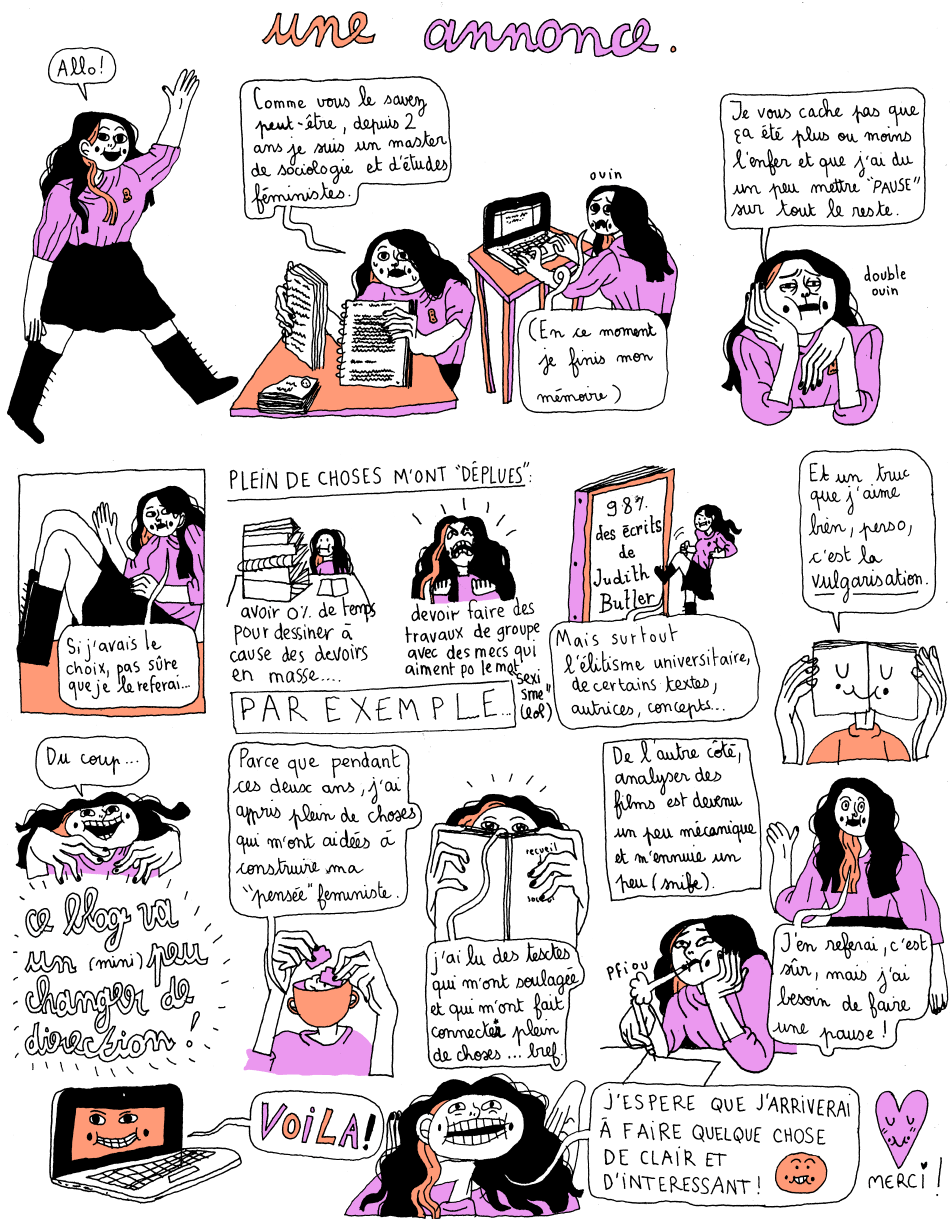 une annonce.
Allo!
Comme vous le savez
peut-être, depuis 2
ans je suis un master
de sociologie et d'études
féministes.
ouin
(En ce moment
je finis mon
mémoire)
Je vous cache pas que
ça été plus ou moins
l'enfer et que j'ai du
un peu mettre "PAUSE"
sur tout le reste.
double
ouin
Si j'avais le
choix, pas sûre
que je le referai...
PLEIN DE CHOSES M'ONT "DÉPLUES":
avoir 0% de temps
pour dessiner à
cause des devoirs
en masse....
devoir faire des
travaux de groupe
avec des mecs qui
aiment po le mot
"sexi
sme"
(lol)
PAR EXEMPLE...
98%
des écrits
de
Judith
Butler
Mais surtout
l'élitisme universitaire,
de certains textes,
autrices, concepts...
Et un truc
que j'aime
bien, perso,
c'est la
vulgarisation.
Du coup...
ce blog va
un (mini) peu
changer de
direction!
Parce que pendant
ces deux ans, j'ai
appris plein de choses
qui m'ont aidées à
construire ma
"pensée" feministe.
recueil
j'ai lu des textes
qui m'ont soulagée
et qui m'ont fait
connecter plein
de choses... bref.
De l'autre côté,
analyser des
films est devenu
un peu mécanique
et m'ennuie un
peu (snife).
pfiou
J'en referai, c'est
sûr, mais j'ai
besoin de faire
une pause!
VOiLA!
J'ESPERE QUE J'ARRIVERAI
À FAIRE QUELQUE CHOSE
DE CLAIR ET
D'INTERESSANT!
MERCi!